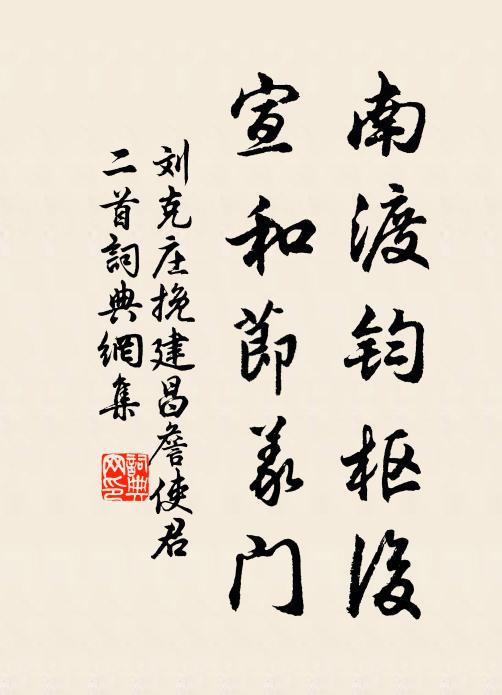 南渡钧枢后
宣和節義门
刘克庄挽建昌詹使君
二首詞典網集
詞典网印